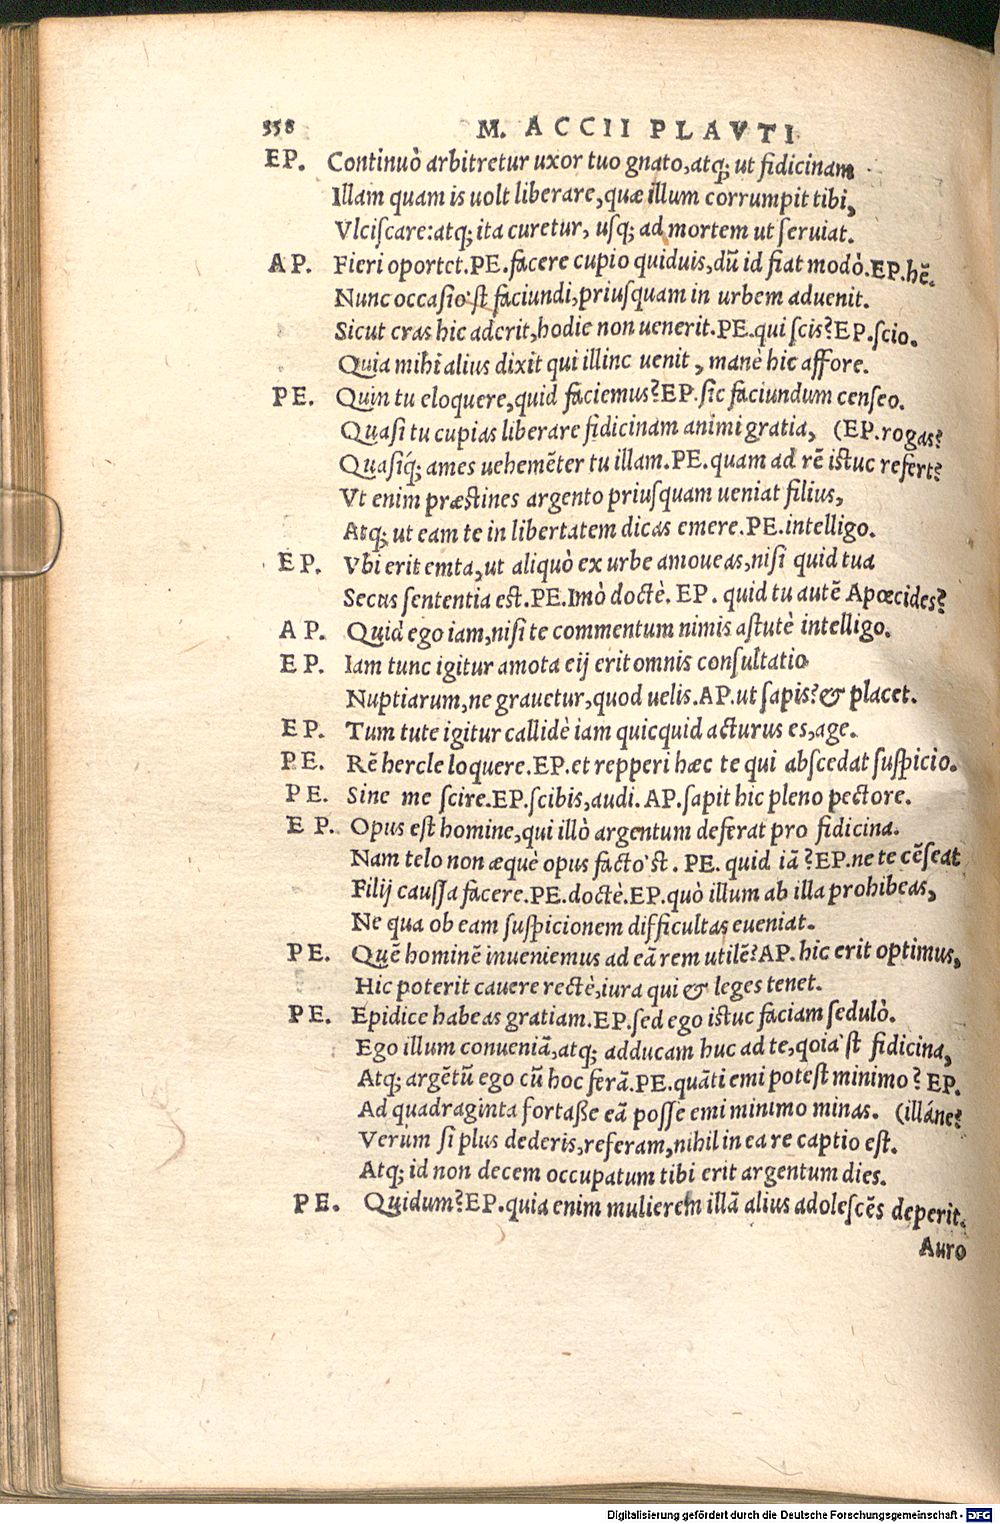 358 M. ACCII PLAVTI
EP. Continuò arbitretur uxor tuo gnato, atq; ut fidicinam
Illam quam is uolt liberare, quæ illum corrumpit tibi,
Vlciſcare: atq; ita curetur, uſq; ad mortem ut ſeruiat.
AP. Fieri oportet. PE. facere cupio quiduis, dũ id fiat modò. EP. hẽ.
Nunc occaſio'ſt faciundi, priuſquam in urbem aduenit.
Sicut cras hic aderit, hodie non uenerit. PE. qui ſcis? EP. ſcio.
Quia mihi alius dixit qui illinc uenit, manè hic affore.
PE. Quin tu eloquere, quid faciemus? EP. ſic faciundum cenſeo.
Quaſi tu cupias liberare fidicinam animi gratia, (EP. rogas?
Quaſiq́; ames uehemẽter tu illam. PE. quam ad rẽ iſtuc refert?
Vt enim præſtines argento priuſquam ueniat filius,
Atq; ut eam te in libertatem dicas emere. PE. intelligo.
EP. Vbi erit emta, ut aliquò ex urbe amoueas, niſi quid tua
Secus ſententia eſt. PE. Imò doctè. EP. quid tu autẽ Apœcides?
AP. Quid ego iam, niſi te commentum nimis aſtutè intelligo.
EP. Iam tunc igitur amota eij erit omnis conſultatio
Nuptiarum, ne grauetur, quod uelis. AP. ut ſapis? & placet.
EP. Tum tute igitur callidè iam quicquid acturus es, age.
PE. Rẽ hercle loquere. EP. et repperi hæc te qui abſcedat ſuſpicio.
PE. Sine me ſcire. EP. ſcibis, audi. AP. ſapit hic pleno pectore.
EP. Opus eſt homine, qui illò argentum deferat pro fidicina.
Nam telo non æquè opus facto'ſt. PE. quid iã? EP. ne te cẽſeat
Filij cauſſa facere. PE. doctè. EP. quò illum ab illa prohibeas,
Ne qua ob eam ſuſpicionem difficultas eueniat.
PE. Quẽ hominẽ inueniemus ad eã rem utilẽ? AP. hic erit optimus,
Hic poterit cauere rectè, iura qui & leges tenet.
PE. Epidice habeas gratiam. EP. ſed ego iſtuc faciam ſedulò.
Ego illum conueniã, atq; adducam huc ad te, qoia'ſt fidicina,
Atq; argẽtũ ego cũ hoc ferã. PE. quãti emi poteſt minimo? EP.
Ad quadraginta fortaße eã poſſe emi minimo minas. (illáne?
Verùm ſi plus dederis, referam, nihil in ea re captio eſt.
Atq; id non decem occupatum tibi erit argentum dies.
PE. Quidum? EP. quia enim mulierem illã alius adoleſcẽs deperit.
Auro
Digitalisierung gefördert durch die Deutsche Forschungsgemeinschaft - DFG